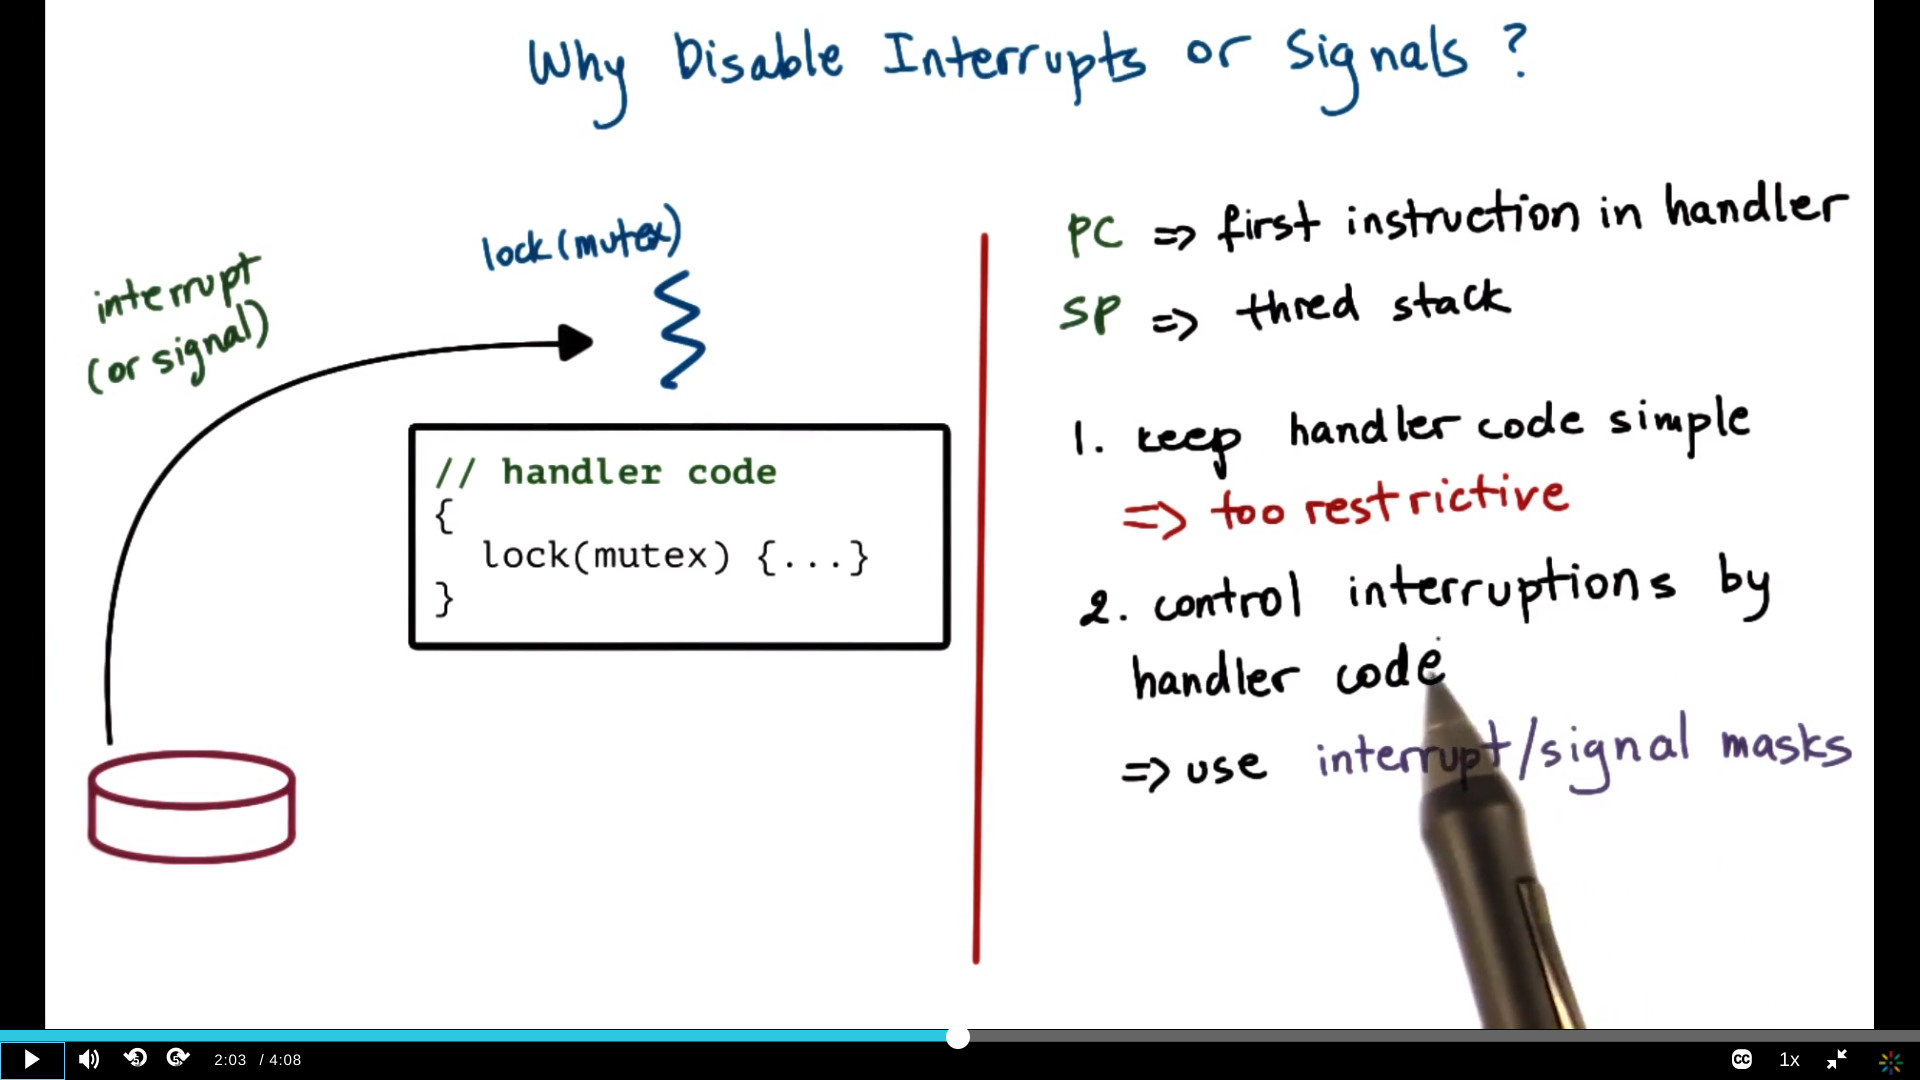 Why Disable Interrupts or Signals ?
interrupt
(or signal)
lock (mutex)
// handler code
{
lock(mutex) {...}
}
PC => first instruction in handler
SP => thred stack
1. keep handler code simple
=> too restrictive
2. control interruptions by
handler code
=> use interrupt/signal masks
5 5 2:03 / 4:08 CC 1x